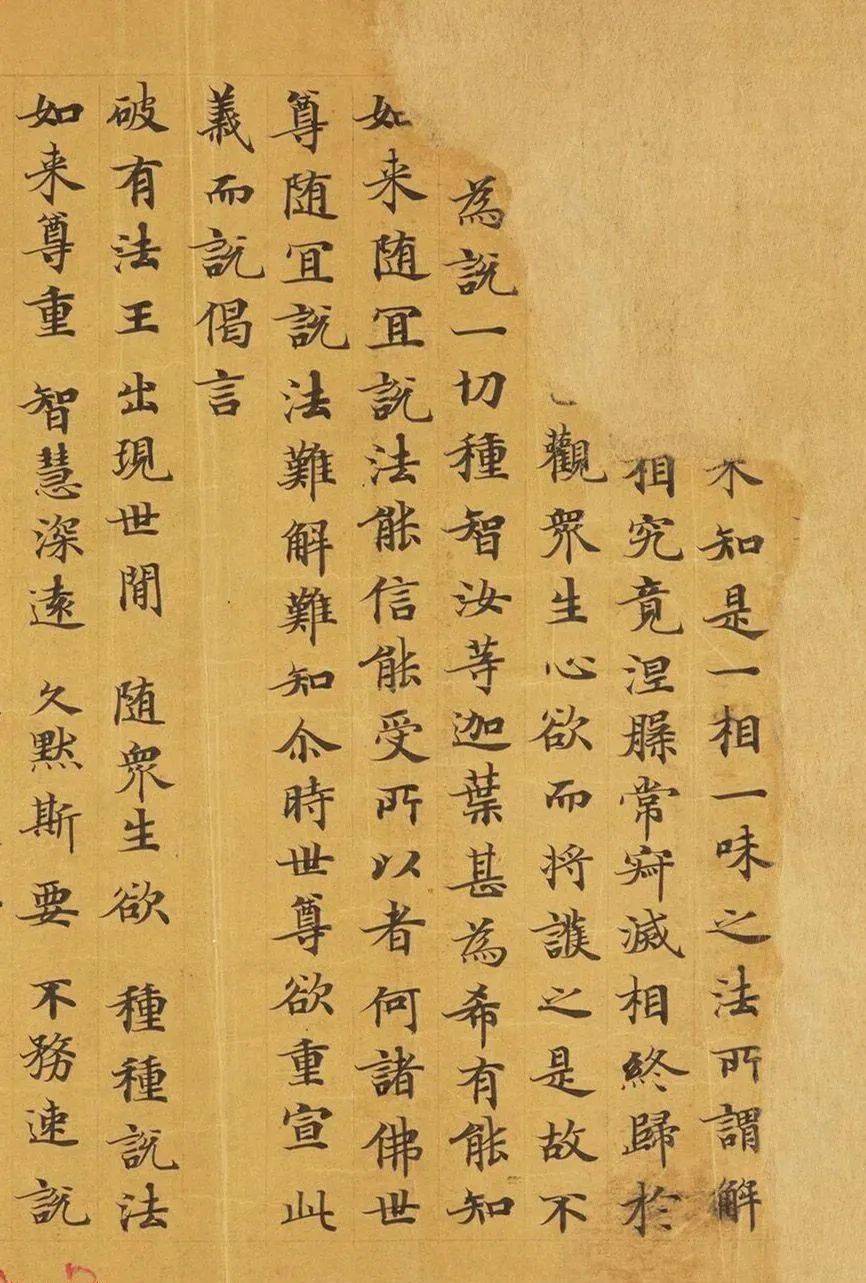 来知是一相一味之法所謂解
相究竟涅槃常寂滅相終歸於
觀衆生心欲而将護之是故不
為説一切種智汝等迦葉甚為希有能知
如来随冝説法能信能受所以者何諸佛世
尊随冝説法難解難知尒時世尊欲重宣此
義而説偈言
破有法王 出現世間 随衆生欲 種種説法
如来尊重 智慧深遠 久默斯要 不務速説